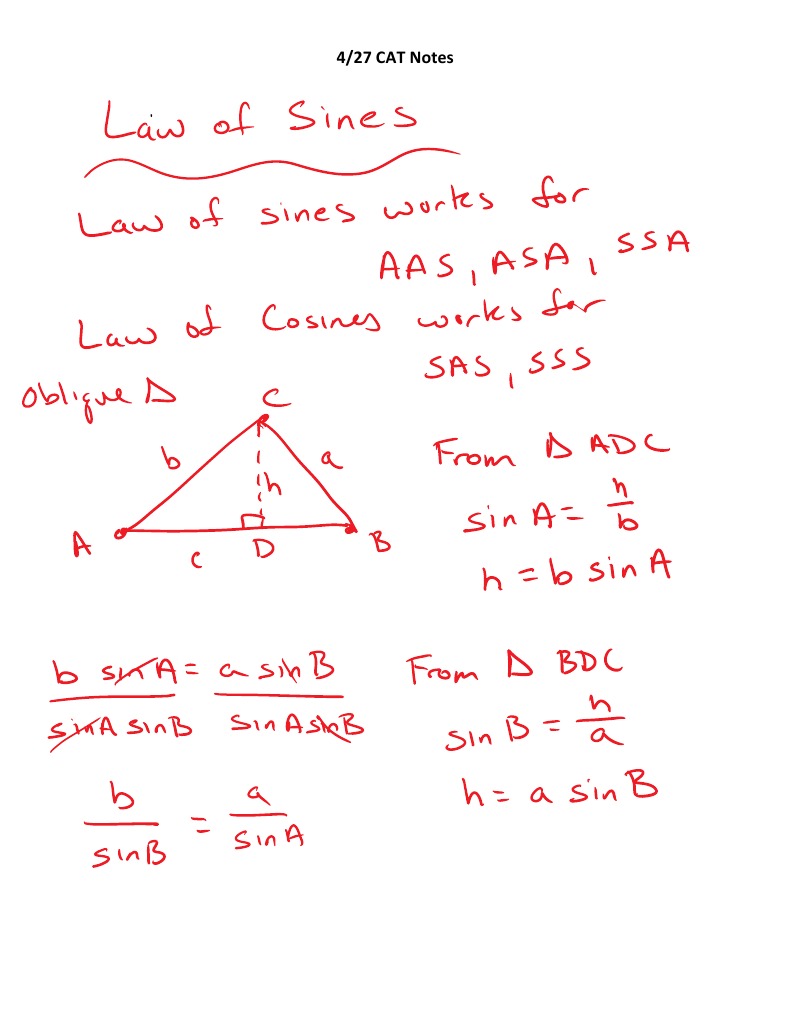 4/27 CAT Notes
Law of Sines
Law of sines works for
AAS, ASA, SSA
Law of Cosines works for
SAS, SSS
Oblique Δ
C
b
a
h
A
c
D
B
From Δ ADC
sin A = h/b
h = b sin A
b sin A = a sin B
sin A sin B   sin A sin B
b/sin B = a/sin A
From Δ BDC
sin B = h/a
h = a sin B